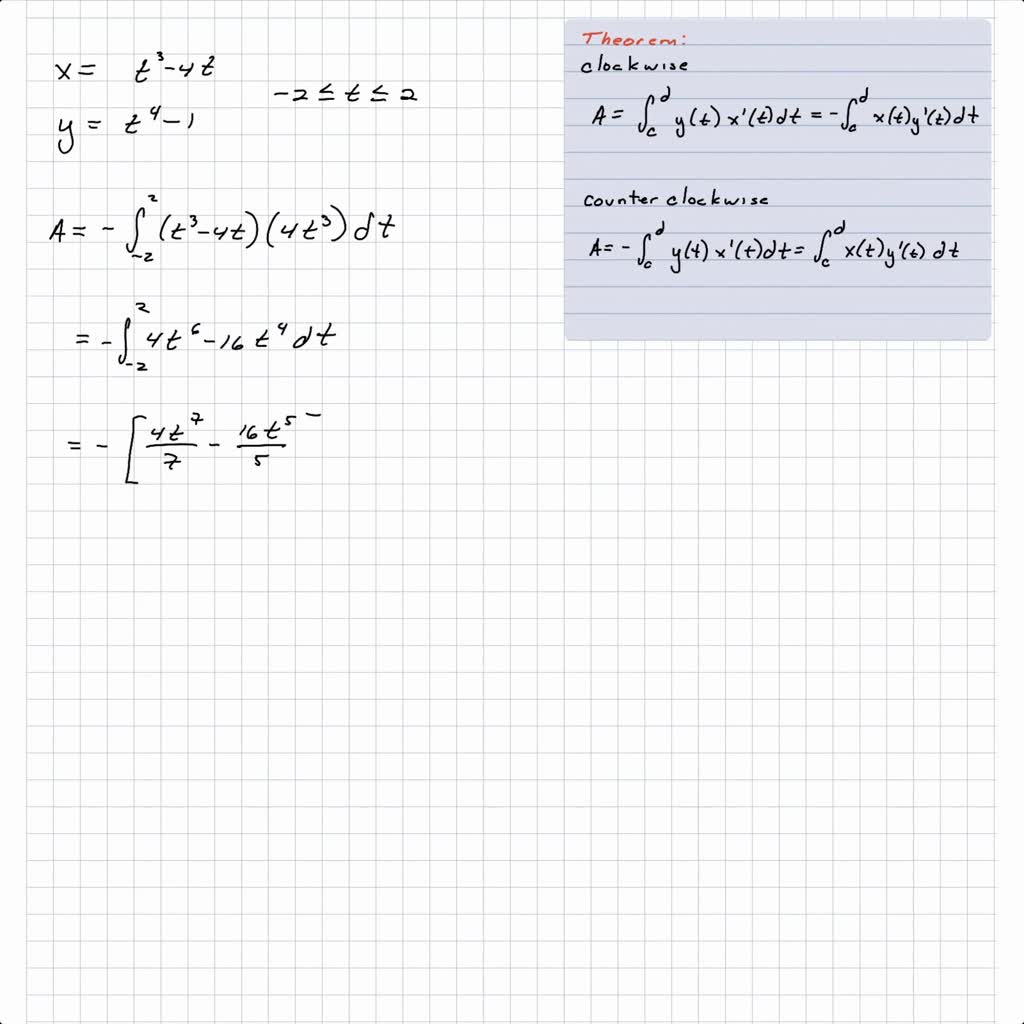 x = t³-4t
-2 ≤ t ≤ 2
y = t⁴-1
A = - ∫₋₂² (t³-4t)(4t³) dt
= - ∫₋₂² 4t⁶-16t⁴ dt
= - [ 4t⁷/7 - 16t⁵/5
Theorem:
clockwise
A = ∫_c^d y(t) x'(t) dt = - ∫_c^d x(t) y'(t) dt
counter clockwise
A = - ∫_c^d y(t) x'(t) dt = ∫_c^d x(t) y'(t) dt